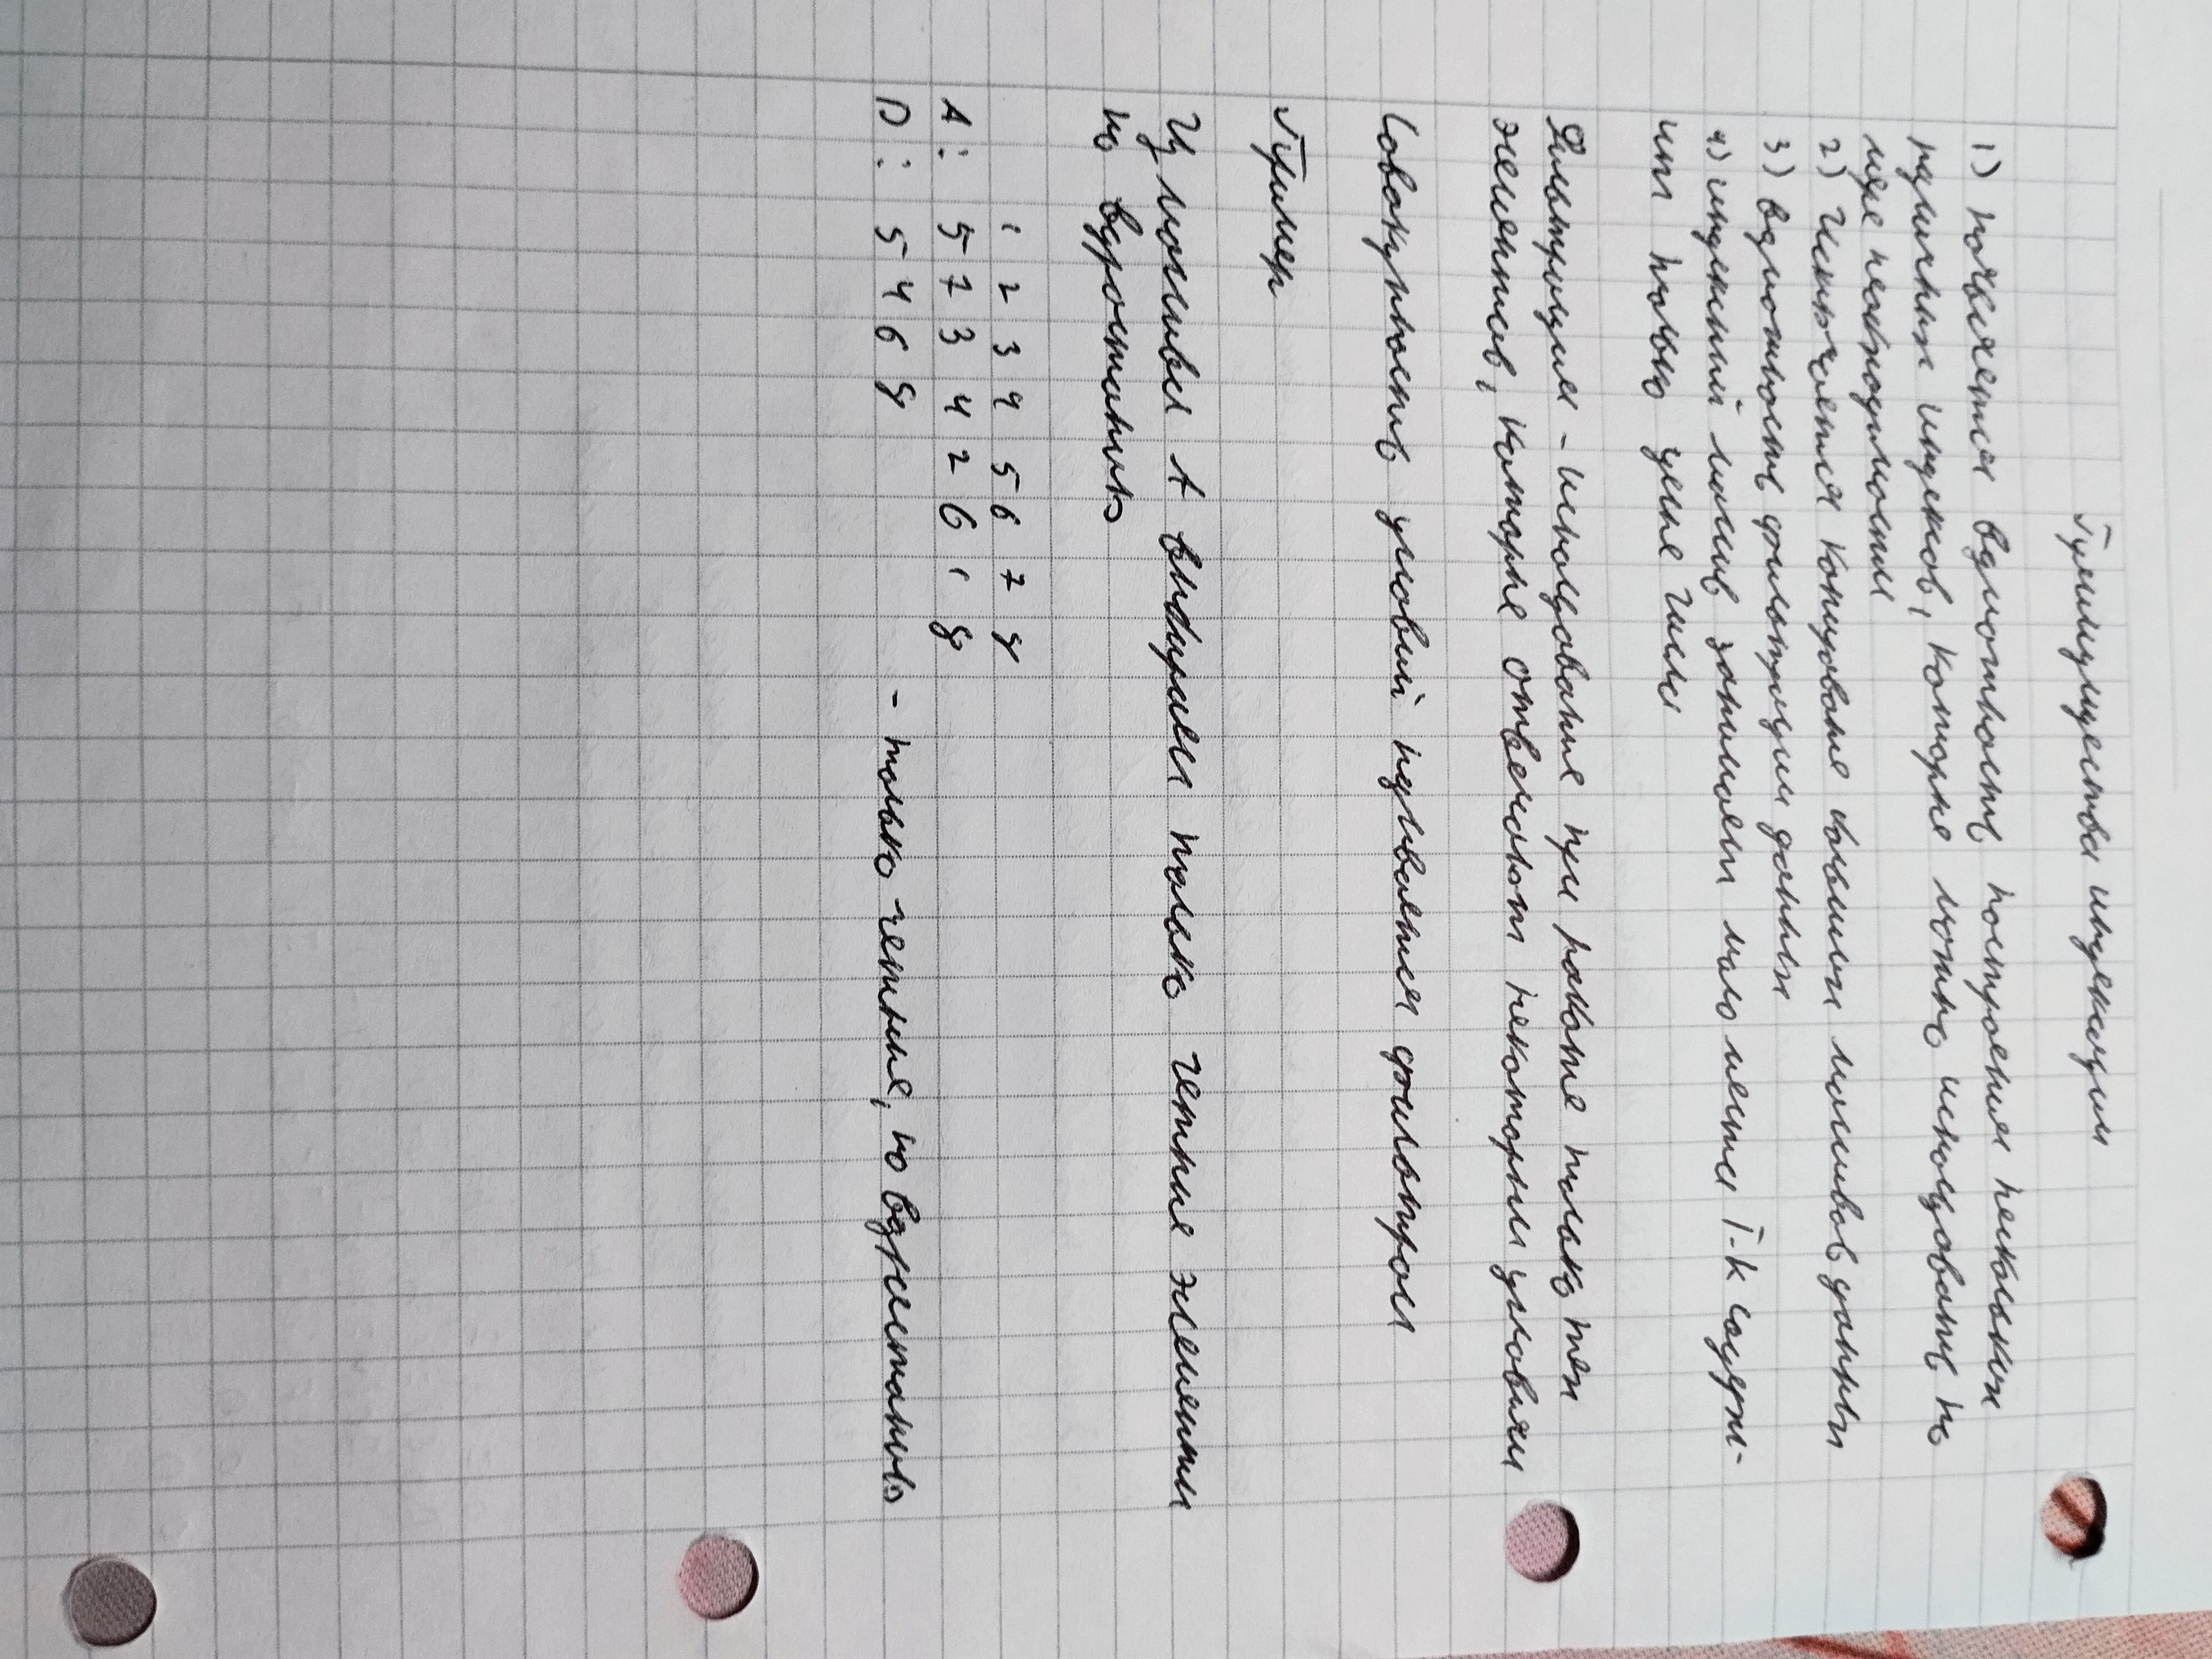 Преимущества индексации
1) появляется возможность построения нескольких
различных индексов, которые можно использовать по
мере необходимости
2) Исключается копирование больших массивов данных
3) возможность фильтрации данных
4) индексный массив занимает мало места т-к содерж-
ит только целые числа
Фильтрация - использование при работе только тех
элементов, которые отвечают некоторым условиям
Совокупность условий называется фильтром
Пример
Из массива A выбираем только четные элементы
по возрастанию
1 2 3 4 5 6 7 8
A: 5 7 3 4 2 6 1 8
D: 5 4 6 8 - только четные, по возрастанию